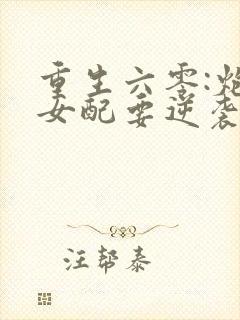 重生六零:炮
女配要逆袭
汪帮泰